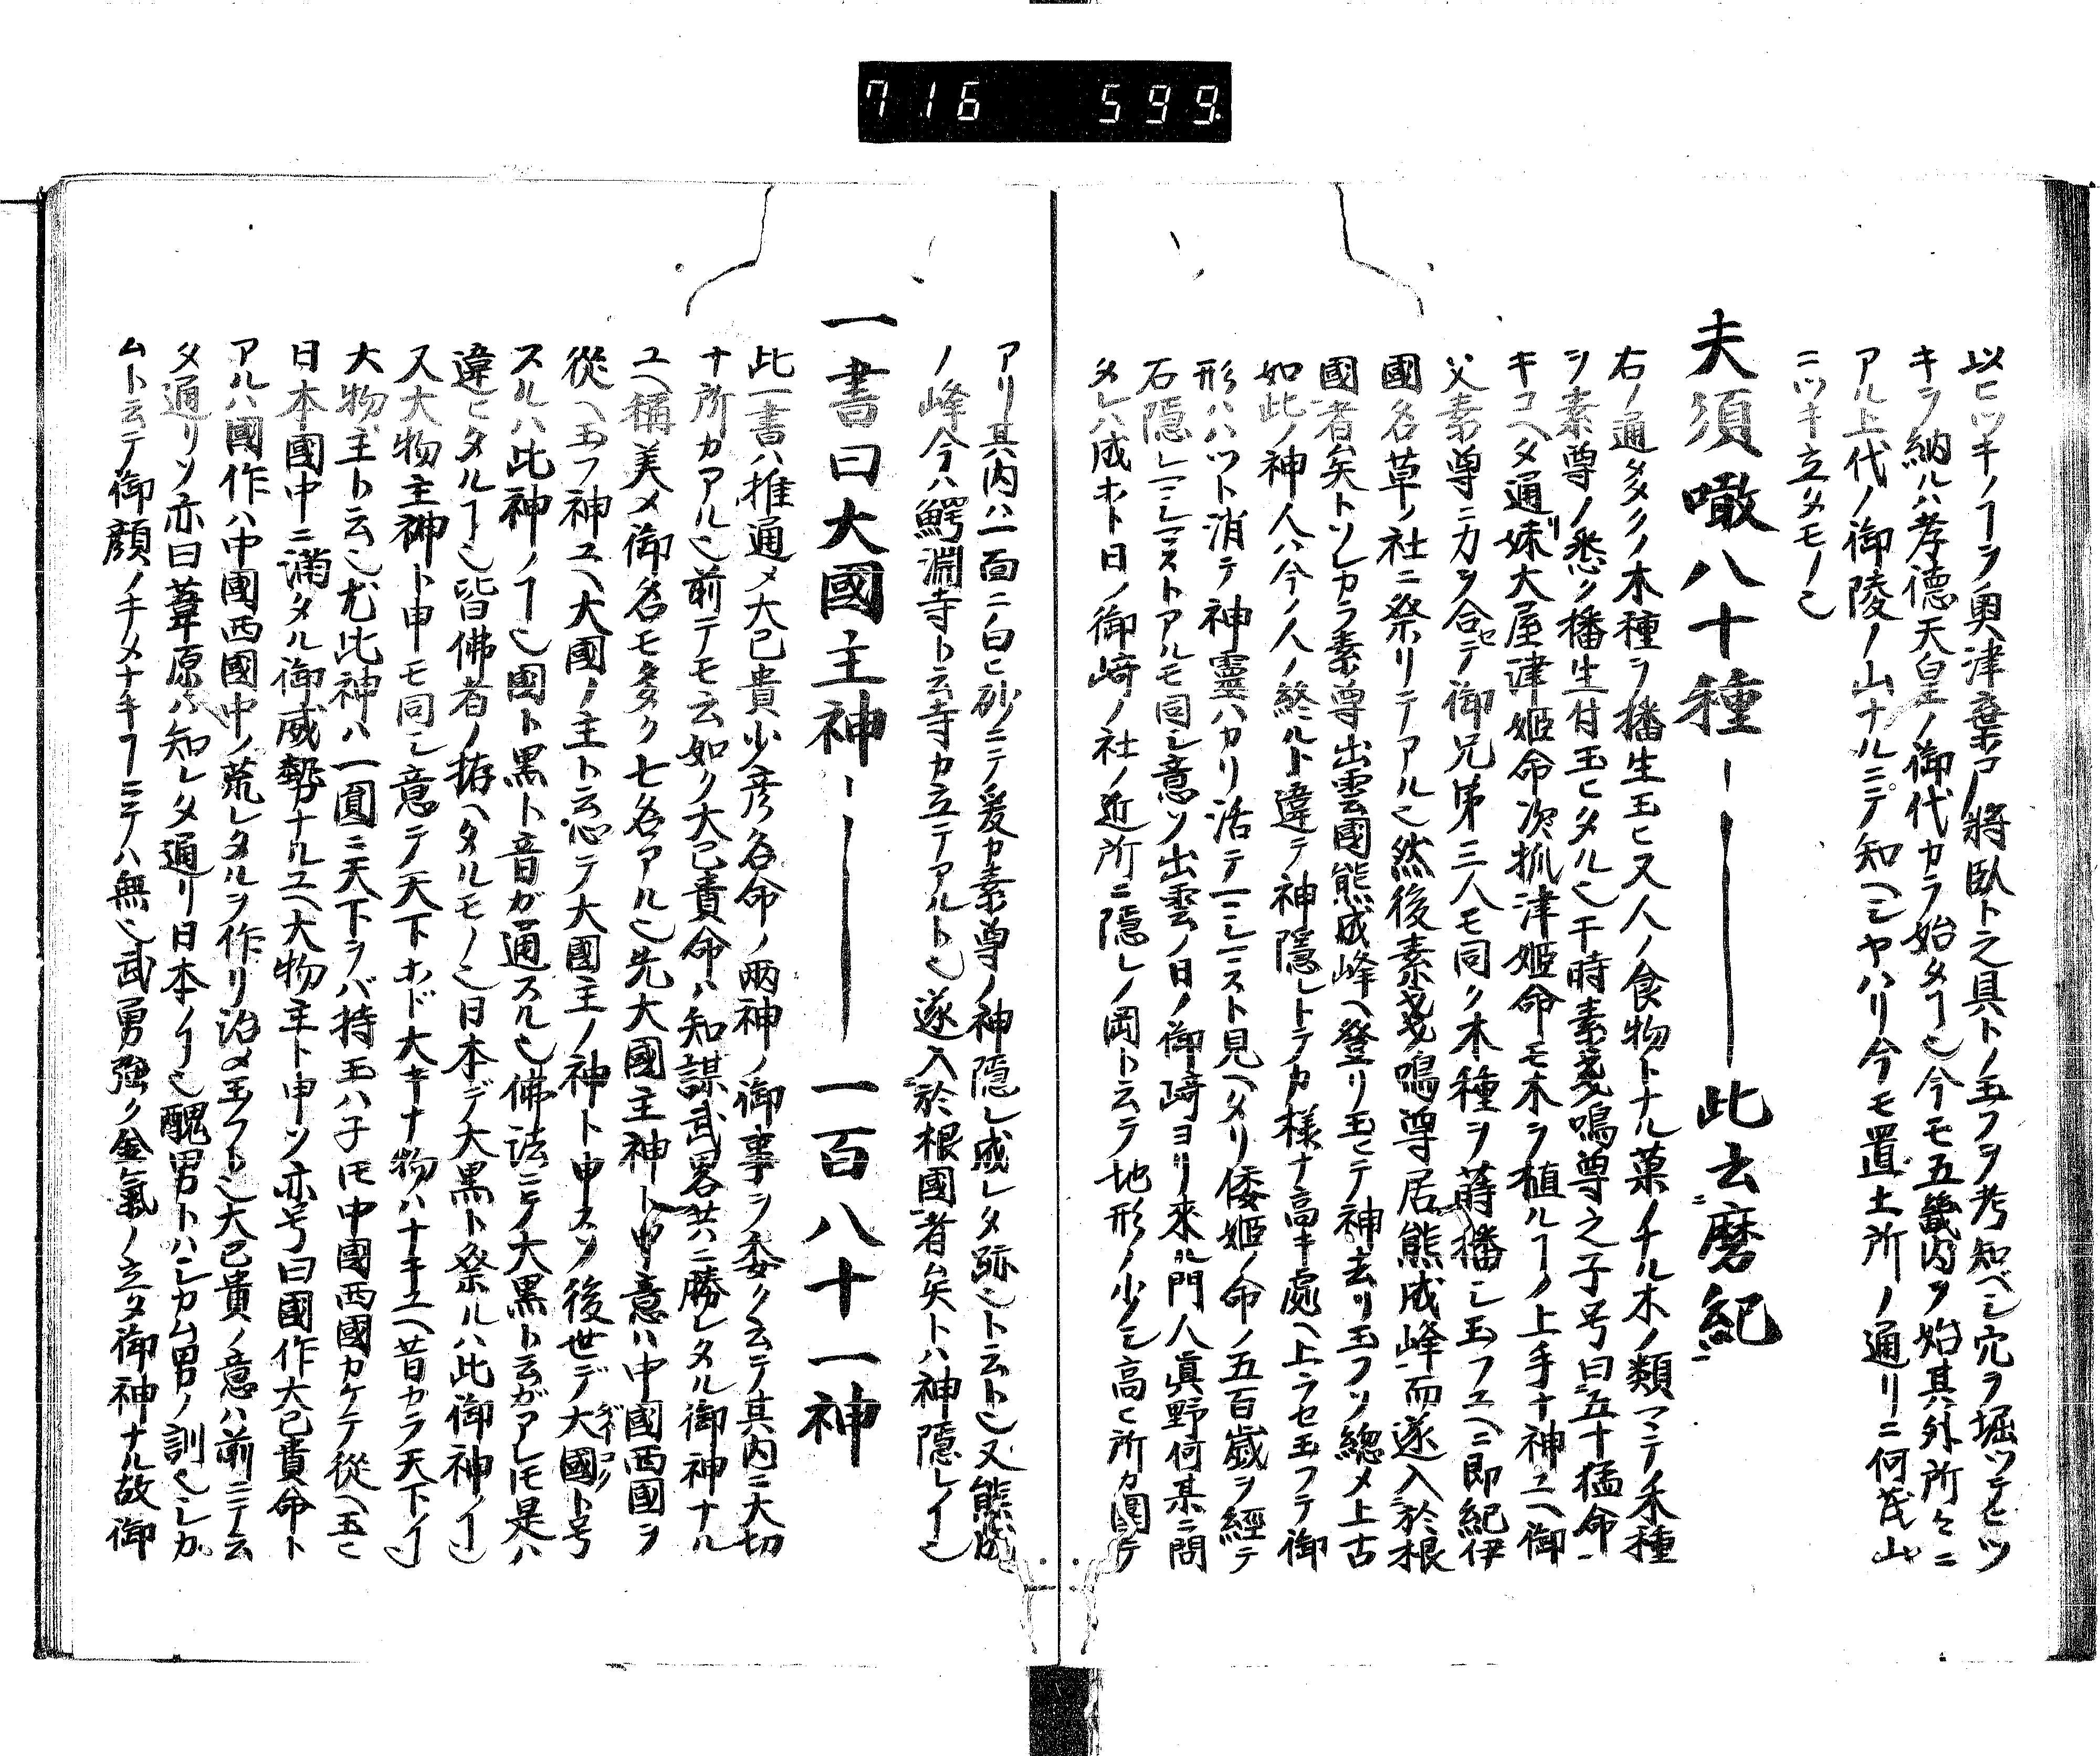 716 599
以ヒツキノ𬼀ヲ奥津棄戸將臥ト之具トノ玉フヲ考知ベシ穴ヲ堀ツテヒツ
キヲ納ルハ孝德天皇ノ御代カラ始タ𬼀也今モ五畿内ヲ始其外所々ニ
アル上代ノ御陵ノ山ナルニテ知ヘシヤハリ今モ置土所ノ通リニ何茂山
ニツキ立タモノ也
夫須噉八十種ー此去磨紀
右ノ通多クノ木種ヲ播生玉ヒ又人ノ食物トナル菓ノナル木ノ類マテ禾種
ヲ素尊ノ悉ク播生付玉ヒタル也于時素戔嗚尊之子号曰五十猛命
キコヘタ通リ妹大屋津姫命次抓津姫命モ木ヲ植ル𬼀ノ上手ナ神ユヘ御
父素尊ニカヲ合セテ御兄弟三人モ同ク木種ヲ蒔播シ玉フユヘニ即紀伊
國名草ノ社ニ祭リテアル也然後素戔嗚尊居熊成峰而遂入於根
國者矣トソレカラ素尊出雲國熊成峰ヘ登リ玉ヒテ神去リ玉フソ総メ上古
如此ノ神人ハ今ノ人ノ終ルト違テ神隱レトテカ様ナ高キ處ヘ上ラセ玉フテ御
形ハハツト消テ神靈ハカリ活テ一ニシ一ニスト見ヘタリ倭姫ノ命ノ五百歲ヲ經テ
石隱レ一ニシ一ニストアルモ同シ意ソ出雲ノ日ノ御崎ヨリ來ル門人眞野何某ニ問
タレハ成ホト日ノ御崎ノ社ノ近所ニ隱レノ岡ト云テ地形ノ少ノミ高ヒ所カ圍テ
アリ其内ハ一面ニ白ヒ砂ニテ爰カ素尊ノ神隱レ成レタ跡也ト云ト也又熊成
ノ峰今ハ鰐淵寺ト云寺カ立テアルト也遂入於根國者矣トハ神隱レノ𬼀也
一書曰大國主神ー一百八十一神
此一書ハ推通メ大己貴少彦名命ノ兩神ノ御事ヲ委ク云テ其内ニ大切
ナ所カアル也前テモ云如ク大己貴命ハ知謀武畧共ニ勝レタル御神ナル
ユヘ稱美メ御名モ多ク七名アル也先大國主神ト申意ハ中國西國ヲ
從ヘ玉フ神ユヘ大國ノ主ト云心テ大國主ノ神ト申スソ後世デ大國ト号
スルハ此神ノ𬼀也國ト黒ト音ガ通スル也佛法ニテ大黒ト云ガアレ𪜈是ハ
違ヒタル𬼀也皆佛者ノ拵ヘタルモノ也日本デ大黒ト祭ルハ此御神ノ𬼀也
又大物主神ト申モ同シ意テ天下ホド大キナ物ハナキユヘ昔カラ天下ノ𬼀ヲ
大物主ト云也尤此神ハ一圓ニ天下ヲバ持玉ハ子𪜈中國西國カケテ從ヘ玉ヒ
日本國中ニ滿タル御威勢ナルユヘ大物主ト申ソ亦号曰國作大己貴命ト
アルハ國作ハ中國西國中ノ荒レタルヲ作リ治メ玉フト也大己貴ノ意ハ前ニテ云
タ通リソ亦曰葦原ハ知レタ通リ日本ノ𬼀也醜男トハシカム男ノ訓也シカ
ムト云テ御顔ノキメナキ𬼀ニテハ無也武勇強ク金氣ノ立タ御神ナル故御